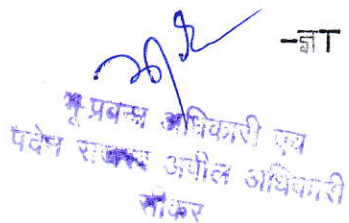 -ज्ञT
भू प्रबन्ध अधिकारी एवं
पदेन राजस्व अपील अधिकारी
सीकर